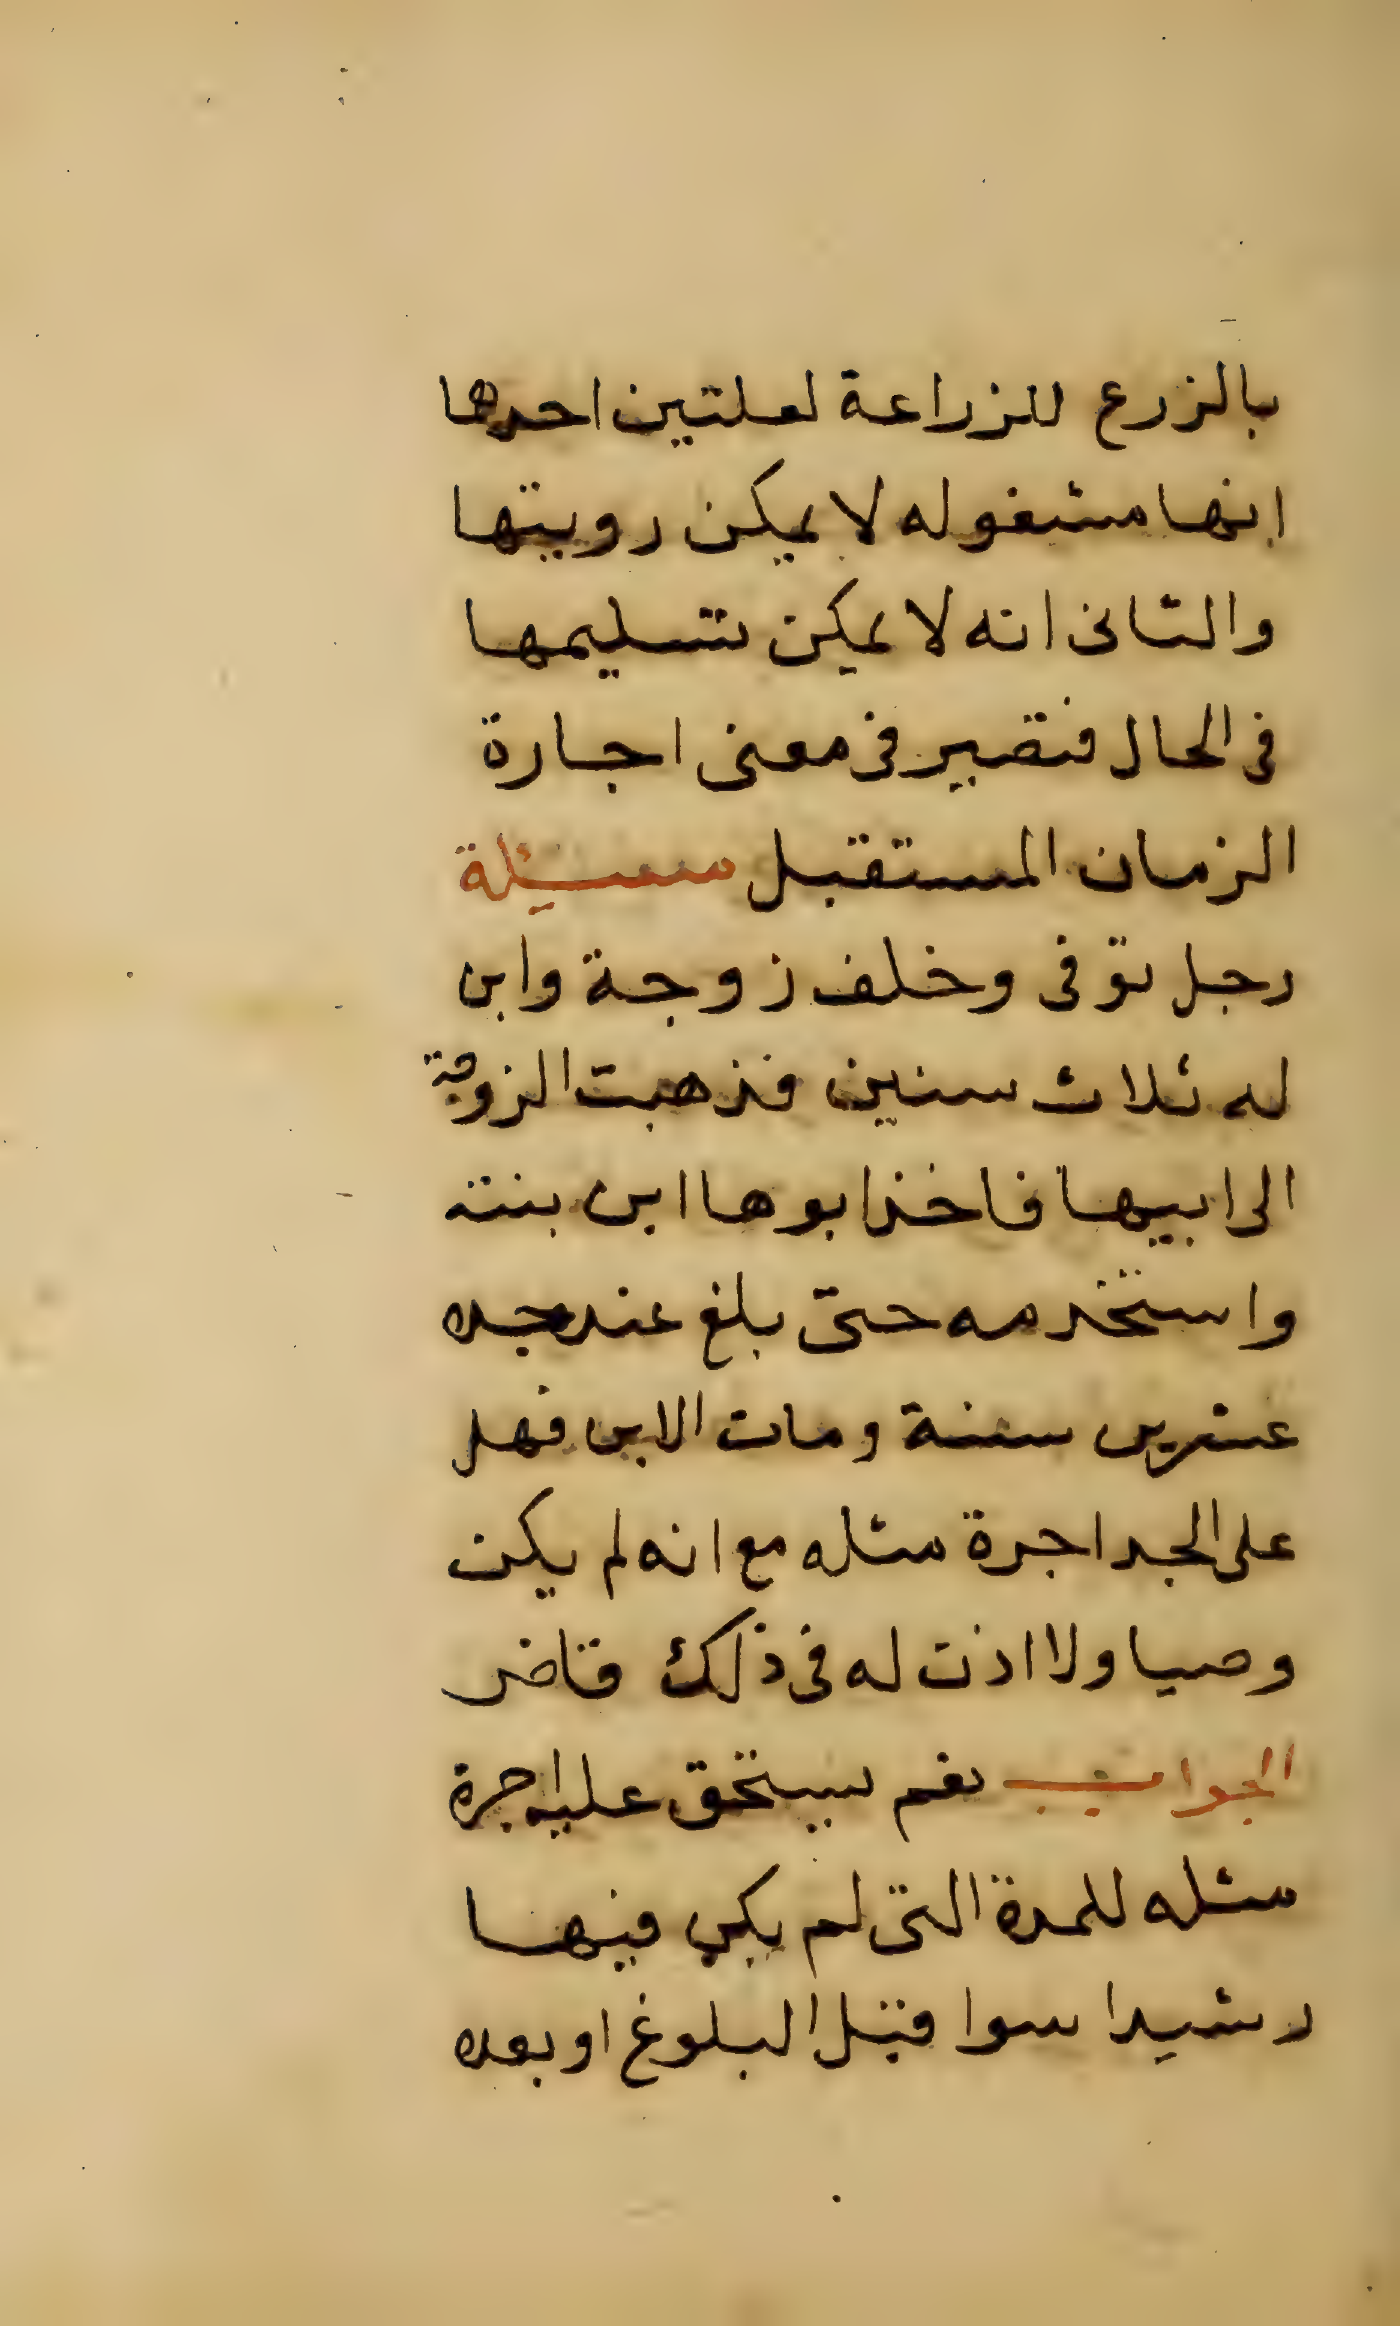 بالزرع للزراعة لعلتين احدها
انها مشغوله لا يمكن رويتها
والثانى انه لا يمكن تسليمها
فى الحال فتصير فى معنى اجارة
الزمان المستقبل مسئلة
رجل توفى وخلف زوجة وابن
له ثلاث سنين فذهبت الزوجة
الى ابيها فاخذ ابوها ابن بنته
واستخدمه حتى بلغ عند جده
عشرين سنة ومات الابن فهل
على الجد اجرة مثله مع انه لم يكن
وصيا ولا اذن له فى ذلك قاض
الجواب نعم يستحق عليه اجرة
مثله للمدة التى لم يكن فيها
رشيدا سوا قبل البلوغ او بعده